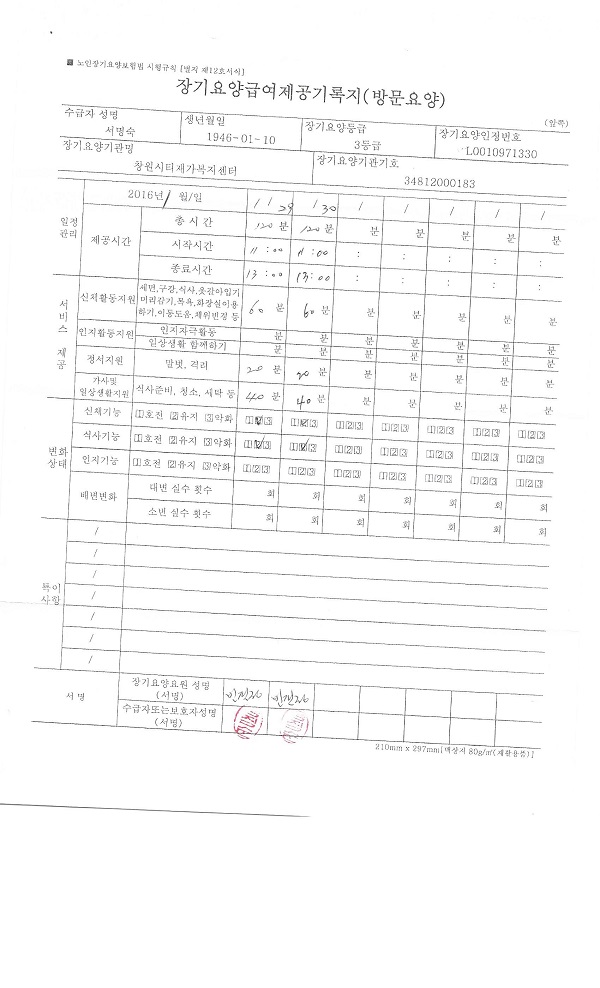 ■ 노인장기요양보험법 시행규칙 [별지 제12호서식]
장기요양급여제공기록지(방문요양)
(앞쪽)
수급자 성명 생년월일 장기요양등급 장기요양인정번호
서명숙 1946-01-10 3등급 L0010971330
장기요양기관명 장기요양기관기호
창원시티재가복지센터 34812000183
일정관리 2016년 1 월/일 1 / 29 1 / 30 / / / / /
제공시간 총 시간 120 분 120 분 분 분 분 분 분
시작시간 11 : 00 11 : 00 : : : : :
종료시간 13 : 00 13 : 00 : : : : :
서비스 제공
신체활동지원 세면,구강,식사,옷갈아입기 60 분 60 분 분 분 분 분 분
머리감기,목욕,화장실이용
하기,이동도움,체위변경 등
인지활동지원 인지자극활동 분 분 분 분 분 분 분
일상생활 함께하기 분 분 분 분 분 분 분
정서지원 말벗, 격려 20 분 20 분 분 분 분 분 분
가사및 일상생활지원 식사준비, 청소, 세탁 등 40 분 40 분 분 분 분 분 분
변화상태
신체기능 1호전 2유지 3악화 123 123 123 123 123 123 123
식사기능 1호전 2유지 3악화 123 123 123 123 123 123 123
인지기능 1호전 2유지 3악화 123 123 123 123 123 123 123
배변변화 대변 실수 횟수 회 회 회 회 회 회 회
소변 실수 횟수 회 회 회 회 회 회 회
특이사항
/
/
/
/
/
/
/
서 명
장기요양요원 성명
(서명)
수급자또는보호자성명
(서명)
210mm x 297mm[백상지 80g/㎡(재활용품)]